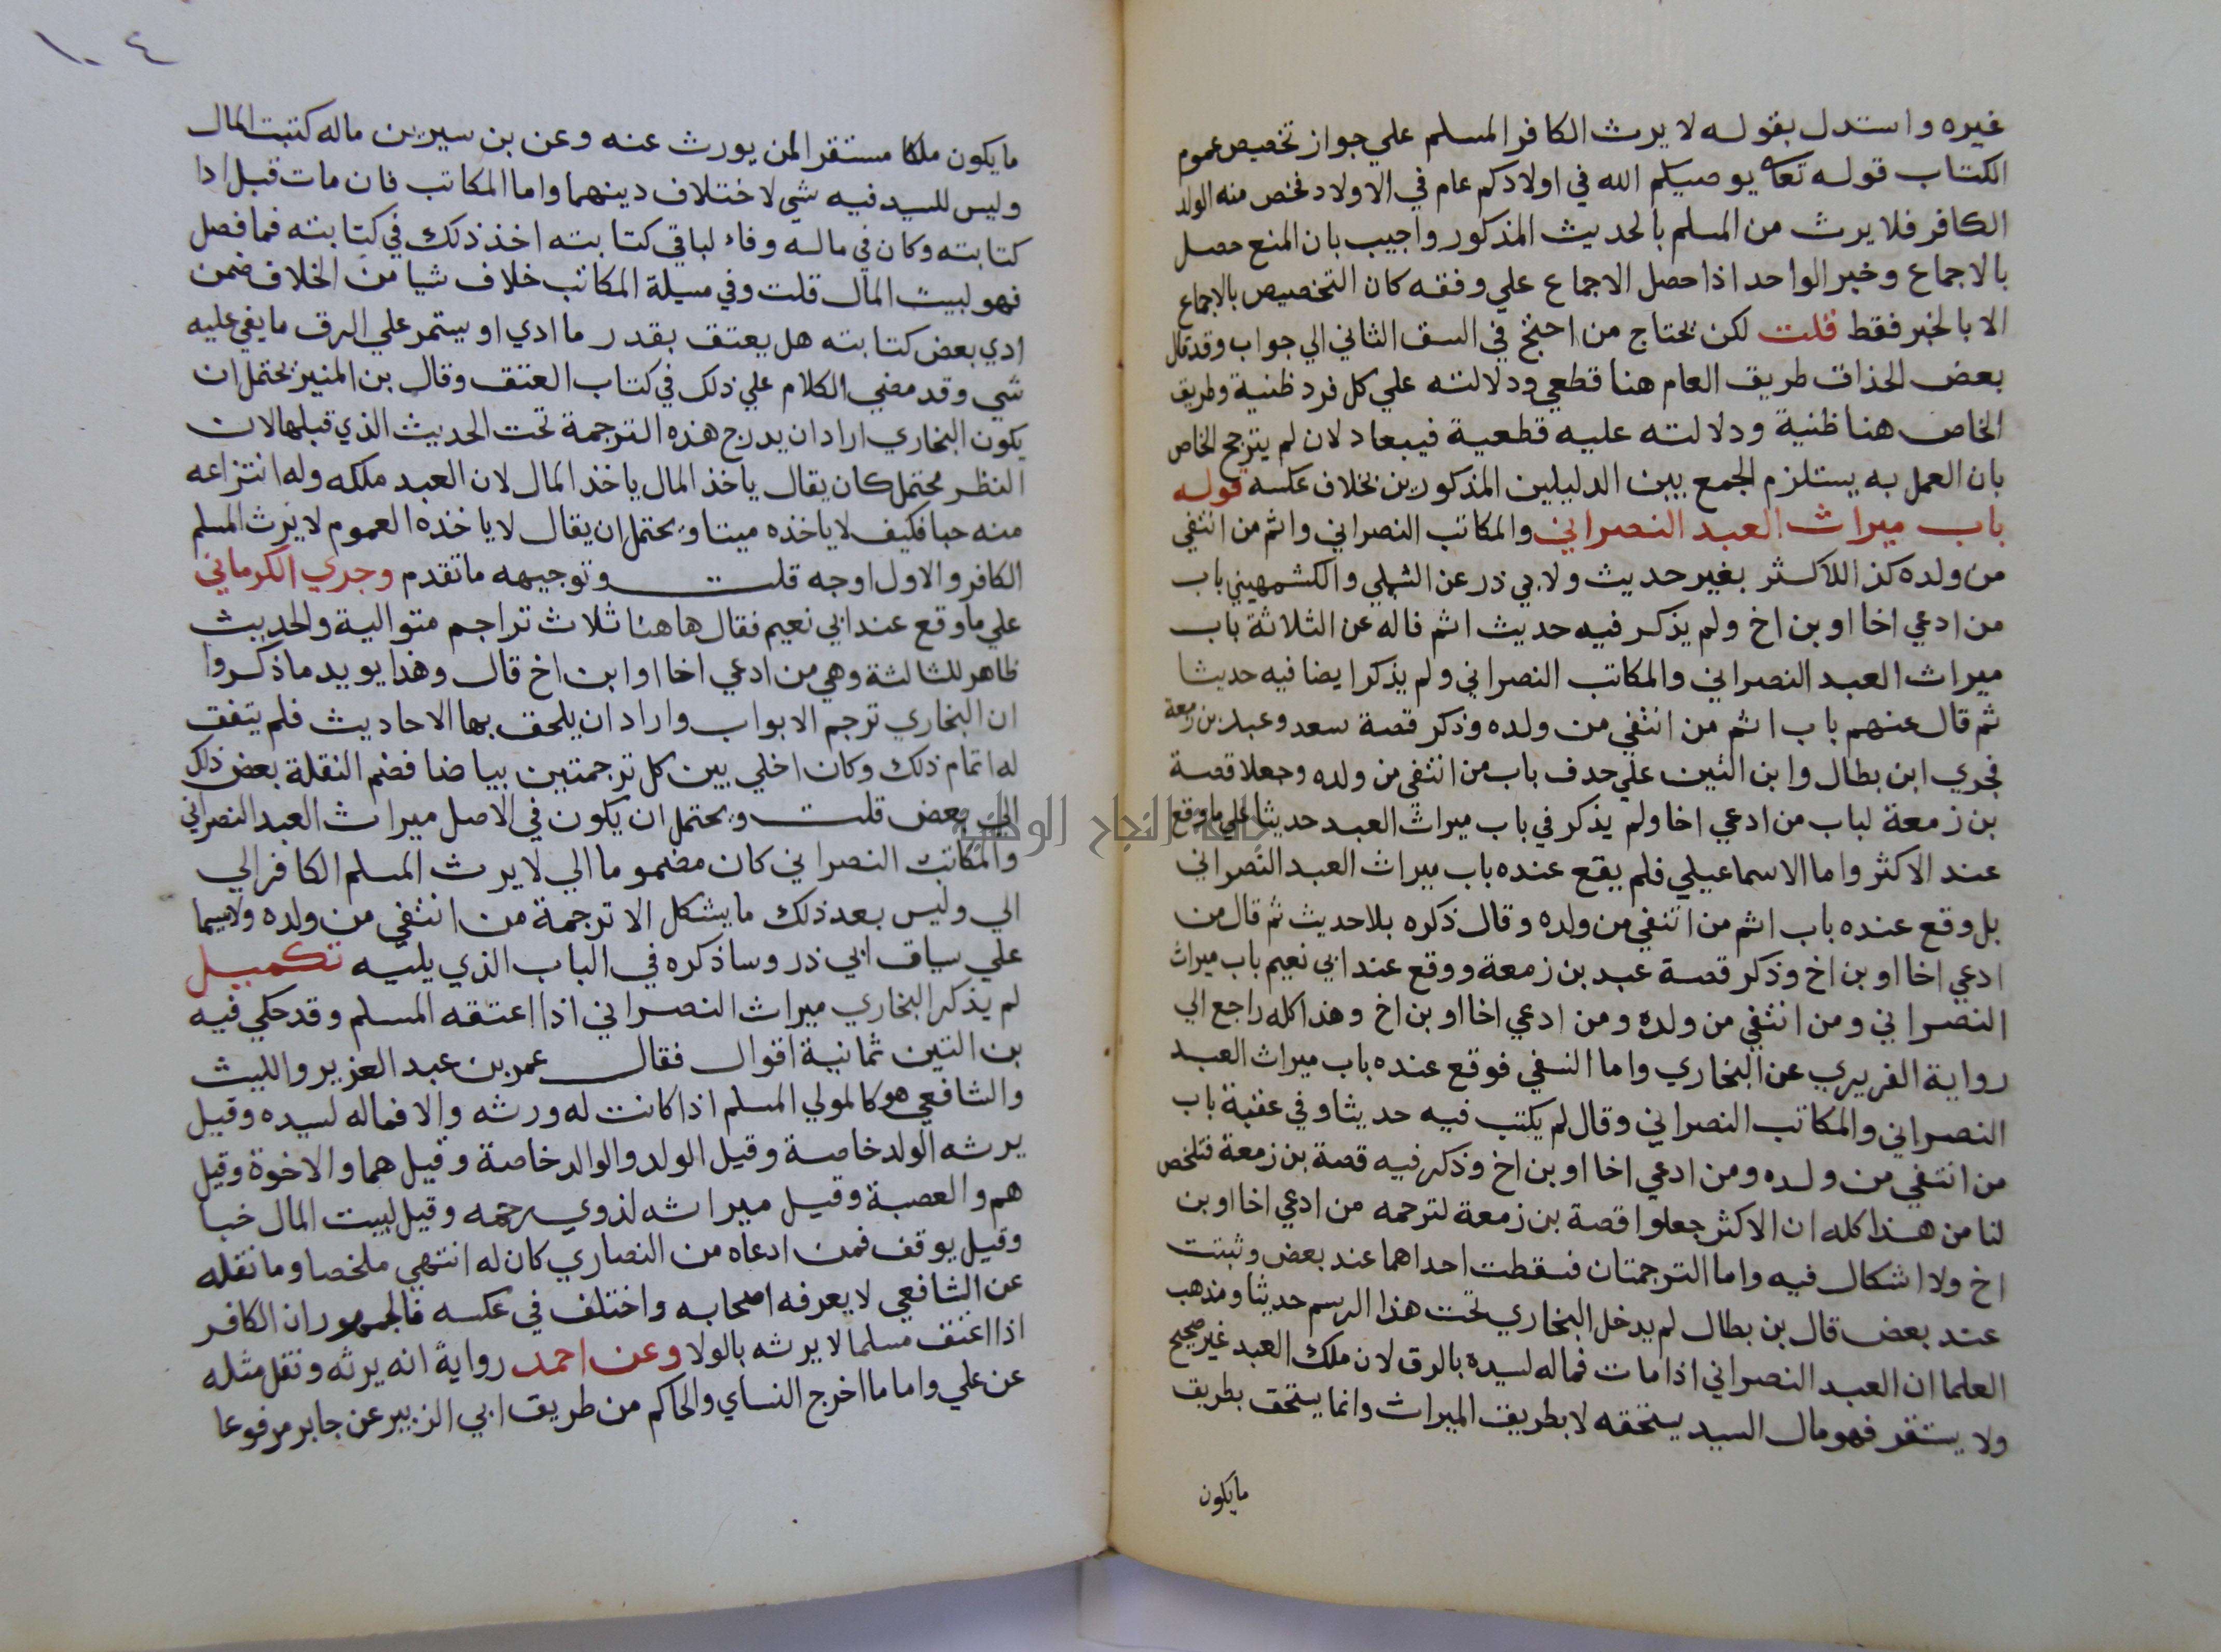 غيره واستدل بقوله لا يرث الكافر المسلم علي جواز تخصيص عموم
الكتاب قوله تعا يوصيكم الله في اولادكم عام في الاولاد فخص منه الولد
الكافر فلا يرث من المسلم بالحديث المذكور واجيب بان المنع حصل
بالاجماع وخبر الواحد اذا حصل الاجماع علي وفقه كان التخصيص بالاجماع
الا بالخبر فقط قلت لكن يحتاج من احتج في السق الثاني الي جواب وقد قال
بعض الحذاق طريق العام هنا قطعي ودلالته علي كل فرد ظنية وطريق
الخاص هنا ظنية ودلالته عليه قطعية فيعادلان لم يترجح الخاص
بان العمل به يستلزم الجمع بين الدليلين المذكورين بخلاف عكسه قوله
باب ميراث العبد النصراني والمكاتب النصراني واثم من انتفي
من ولده كذا للاكثر بغير حديث ولابي ذر عن المستملي والكشمهيني باب
من ادعي اخا او بن اخ ولم يذكر فيه حديث اثم قاله عن الثلاثة باب
ميراث العبد النصراني والمكاتب النصراني ولم يذكر ايضا فيه حديثا
ثم قال عنهم باب اثم من انتفي من ولده وذكر قصة سعد وعبد بن زمعة
فجري ابن بطال وابن التين علي حدف باب من انتفي من ولده وجعلا قصة
بن زمعة لباب من ادعي اخا ولم يذكر في باب ميراث العبد حديثا علي ما وقع
عند الاكثر واما الاسماعيلي فلم يقع عنده باب ميراث العبد النصراني
بل وقع عنده باب اثم من انتفي من ولده وقال ذكره بلا حديث ثم قال من
ادعي اخا او بن اخ وذكر قصة عبد بن زمعة ووقع عند ابي نعيم باب ميراث
النصراني ومن انتفي من ولده ومن ادعي اخا او بن اخ وهذا كله راجع الي
رواية الفربري عن البخاري واما النسفي فوقع عنده باب ميراث العبد
النصراني والمكاتب النصراني وقال لم يكتب فيه حديثا وفي عقبة باب
من انتفي من ولده ومن ادعي اخا او بن اخ وذكر فيه قصة بن زمعة فتلخص
لنا من هذا كله ان الاكثر جعلوا قصة بن زمعة لترجمه من ادعي اخا او بن
اخ ولا اشكال فيه واما الترجمتان فسقطت احداهما عند بعض وثبتت
عند بعض قال بن بطال لم يدخل البخاري تحت هذا الرسم حديثا ومذهب
العلما ان العبد النصراني اذا مات فماله لسيده بالرق لان ملك العبد غير صحيح
ولا يستقر فهو مال السيد يستحقه لا بطريق الميراث وانما يستحق بطريق
ما يكون
١٠٤
ما يكون ملكا مستقرا لمن يورث عنه وعن بن سيرين ماله كتبت المال
وليس للسيد فيه شي لاختلاف دينهما واما المكاتب فان مات قبل ادا
كتابته وكان في ماله وفاء لباقي كتابته اخذ ذلك في كتابته فما فصل
فهو لبيت المال قلت وفي مسيلة المكاتب خلاف شيا من الخلاف ضمن
ادي بعض كتابته هل يعتق بقدر ما ادي او يستمر علي الرق ما يقي عليه
شي وقد مضي الكلام علي ذلك في كتاب العتق وقال بن المنير يحتمل ان
يكون البخاري اراد ان يدرج هذه الترجمة تحت الحديث الذي قبلها لان
النظر محتمل كان يقال ياخذ المال ياخذ المال لان العبد ملكه وله انتزاعه
منه حيا فكيف لا ياخذه ميتا ويحتمل ان يقال لا ياخذه العموم لا يرث المسلم
الكافر والاول اوجه قلت وتوجيهه ما تقدم وجري الكرماني
علي ما وقع عند ابي نعيم فقال هاهنا ثلاث تراجم متوالية والحديث
ظاهر للثالثة وهي من ادعي اخا او ابن اخ قال وهذا يويد ما ذكروا
ان البخاري ترجم الابواب واراد ان يلحق بها الاحاديث فلم يتفق
له اتمام ذلك وكان اخلي بين كل ترجمتين بياضا فضم النقلة بعض ذلك
الي بعض قلت ويحتمل ان يكون في الاصل ميراث العبد النصراني
والمكاتب النصراني كان مضموما الي لا يرث المسلم الكافر الي
الي وليس بعد ذلك ما يشكل الا ترجمة من انتفي من ولده ولاسيما
علي سياق ابي ذر وساذكره في الباب الذي يليه تكميل
لم يذكر البخاري ميراث النصراني اذا اعتقه المسلم وقد حكي فيه
بن التين ثمانية اقوال فقال عمر بن عبد العزيز والليث
والشافعي هو كالمولي المسلم اذا كانت له ورثه والا فماله لسيده وقيل
يرثه الولد خاصة وقيل الولد والوالد خاصة وقيل هما والاخوة وقيل
هم والعصبة وقيل ميراثه لذوي رحمه وقيل لبيت المال خبا
وقيل يوقف فمن ادعاه من النصاري كان له انتهي ملخصا وما نقله
عن الشافعي لا يعرفه اصحابه واختلف في عكسه فالجمهور ان الكافر
اذا اعتق مسلما لا يرثه بالولا وعن احمد رواية انه يرثه ونقل مثله
عن علي واما ما اخرج النساي والحاكم من طريق ابي الزبير عن جابر مرفوعا
جامعة النجاح الوطنية